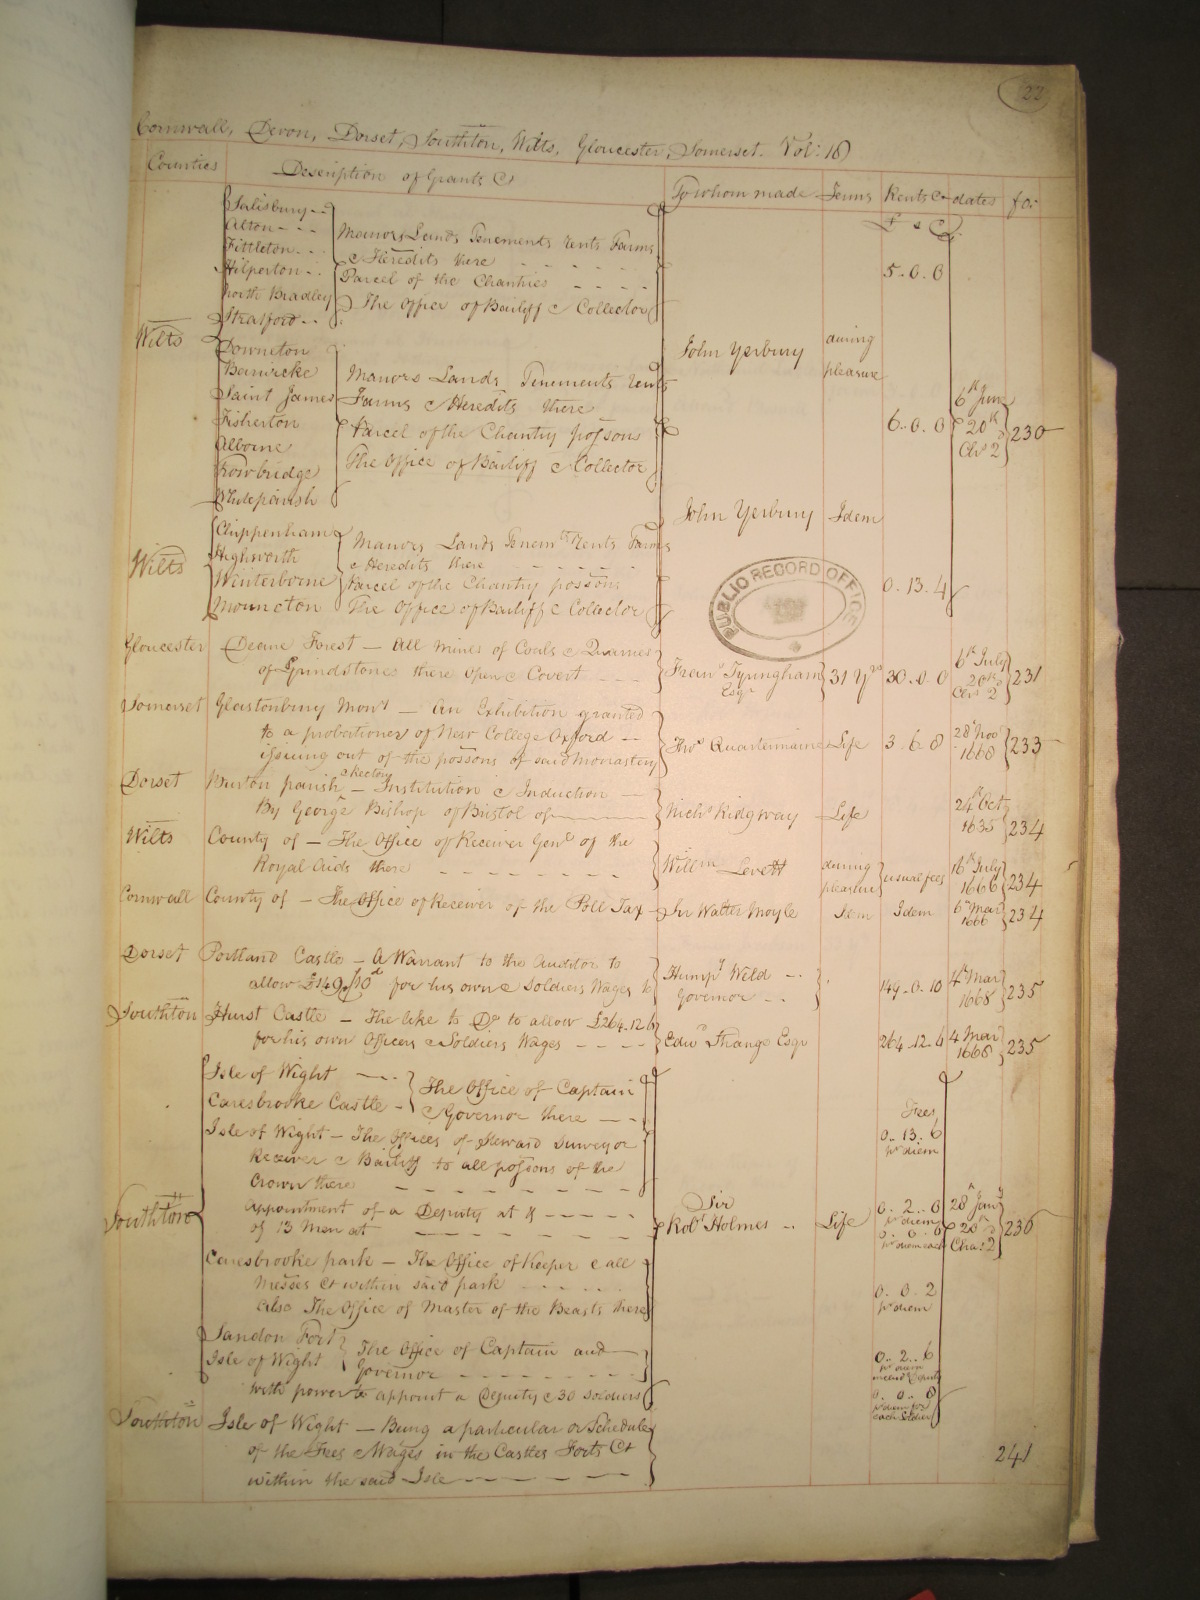 22
Cornwall, Devon, Dorset, Southton, Wilts, Gloucester, Somerset. Vol: 18
Counties Description of Grants &c To whom made Terms Rents &c dates fo:
£ s d
Salisbury
Alton
Fittleton
Hilperton
North Bradley
Stratford
Manors Lands Tenements rents Farms
& Heredits there
Parcel of the Chantries
The Office of Bailiff & Collector
5. 0. 0
Wilts
Downeton
Saint James
Fisherton
Alborne
Trowbridge
Whiteparish
Manors Lands Tenements rents
Farms & Heredits there
Parcel of the Chantry possons
The Office of Bailiff & Collector
John Yerbury during
pleasure
6. 0. 0
6th June
20th
Chs 2d
230
Wilts
Chippenham
Highworth
Winterborne
Mouncton
Manors Lands Tenemts rents Farms
& Heredits there
Parcel of the Chantry possons
The Office of Bailiff & Collector
John Yerbury Idem
0. 13. 4
PUBLIC RECORD OFFICE
Gloucester Deane Forest — All mines of Coals & Quarries
of Grindstones there open & Covert
Frans Tyringham
Esqr
31 Yrs 30. 0. 0
6th July
20th
Chs 2d
231
Somerset Glastonbury Mony — An Exhibition granted
to a probationer of New College Oxford
issuing out of the possons of said Monastery
Thos Quartermaine Life 3. 6. 8
28 Nov
1668
233
Dorset Burton parish & Rectory — Institution & Induction
By George Bishop of Bristol of
Nichs Ridgway Life
24th Oct
1635
234
Wilts County of — The Office of Receiver Genl of the
Royal Aids there
Willm Levett during
pleasure
usual fees
16th July
1666
234
Cornwall County of — The Office of Receiver of the Poll Tax Sir Walter Moyle Idem Idem
6th Mar
1666
234
Dorset Portland Castle — A Warrant to the Auditor to
allow £149. /10d for his own & Soldiers Wages to
Humpy Weld
Governor
149. 0. 10
4th Mar
1668
235
Southton Hurst Castle — The like to Do to allow £264.12.6
for his own Officers & Soldiers Wages
Edwd Strange Esqr
264. 12. 6
4 Mar
1668
235
Southton
Isle of Wight
Caresbrooke Castle
The Office of Captain
& Governor there
Isle of Wight — The Offices of Steward Surveyor
Receiver & Bailiff to all possons of the
Crown there
Appointment of a Deputy at &
of 13 Men at
Caresbrooke park — The Office of Keeper & all
Messes &c within said park
also The Office of Master of the Beasts there
Sandon Fort
Isle of Wight
The Office of Captain and
Governor
with power to appoint a Deputy & 30 Soldiers
Sir
Robt Holmes Life
Fees
0. 13. 6
pr diem
0. 2. 0
pr diem
0. 0. 8
pr diem each
0. 0. 2
pr diem
0. 2. 6
pr diem
0. 0. 8
pr diem for
each Soldier
28th Jany
20th
Chas: 2
236
Southton Isle of Wight — Being a particular or Schedule
of the Fees & Wages in the Castles Forts &c
within the said Isle
241